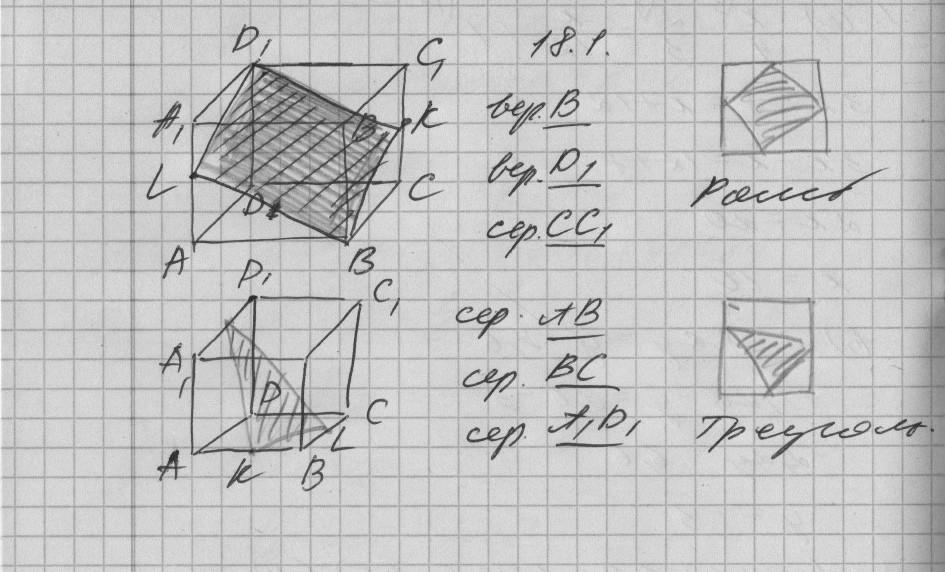 18.1.
D₁ C₁
A₁ B₁ K
L D C
A B
вер. B
вер. D₁
сер. CC₁
Ромб
D₁ C₁
A₁
D C
A K B L
сер. AB
сер. BC
сер. A₁D₁
Треуголь.